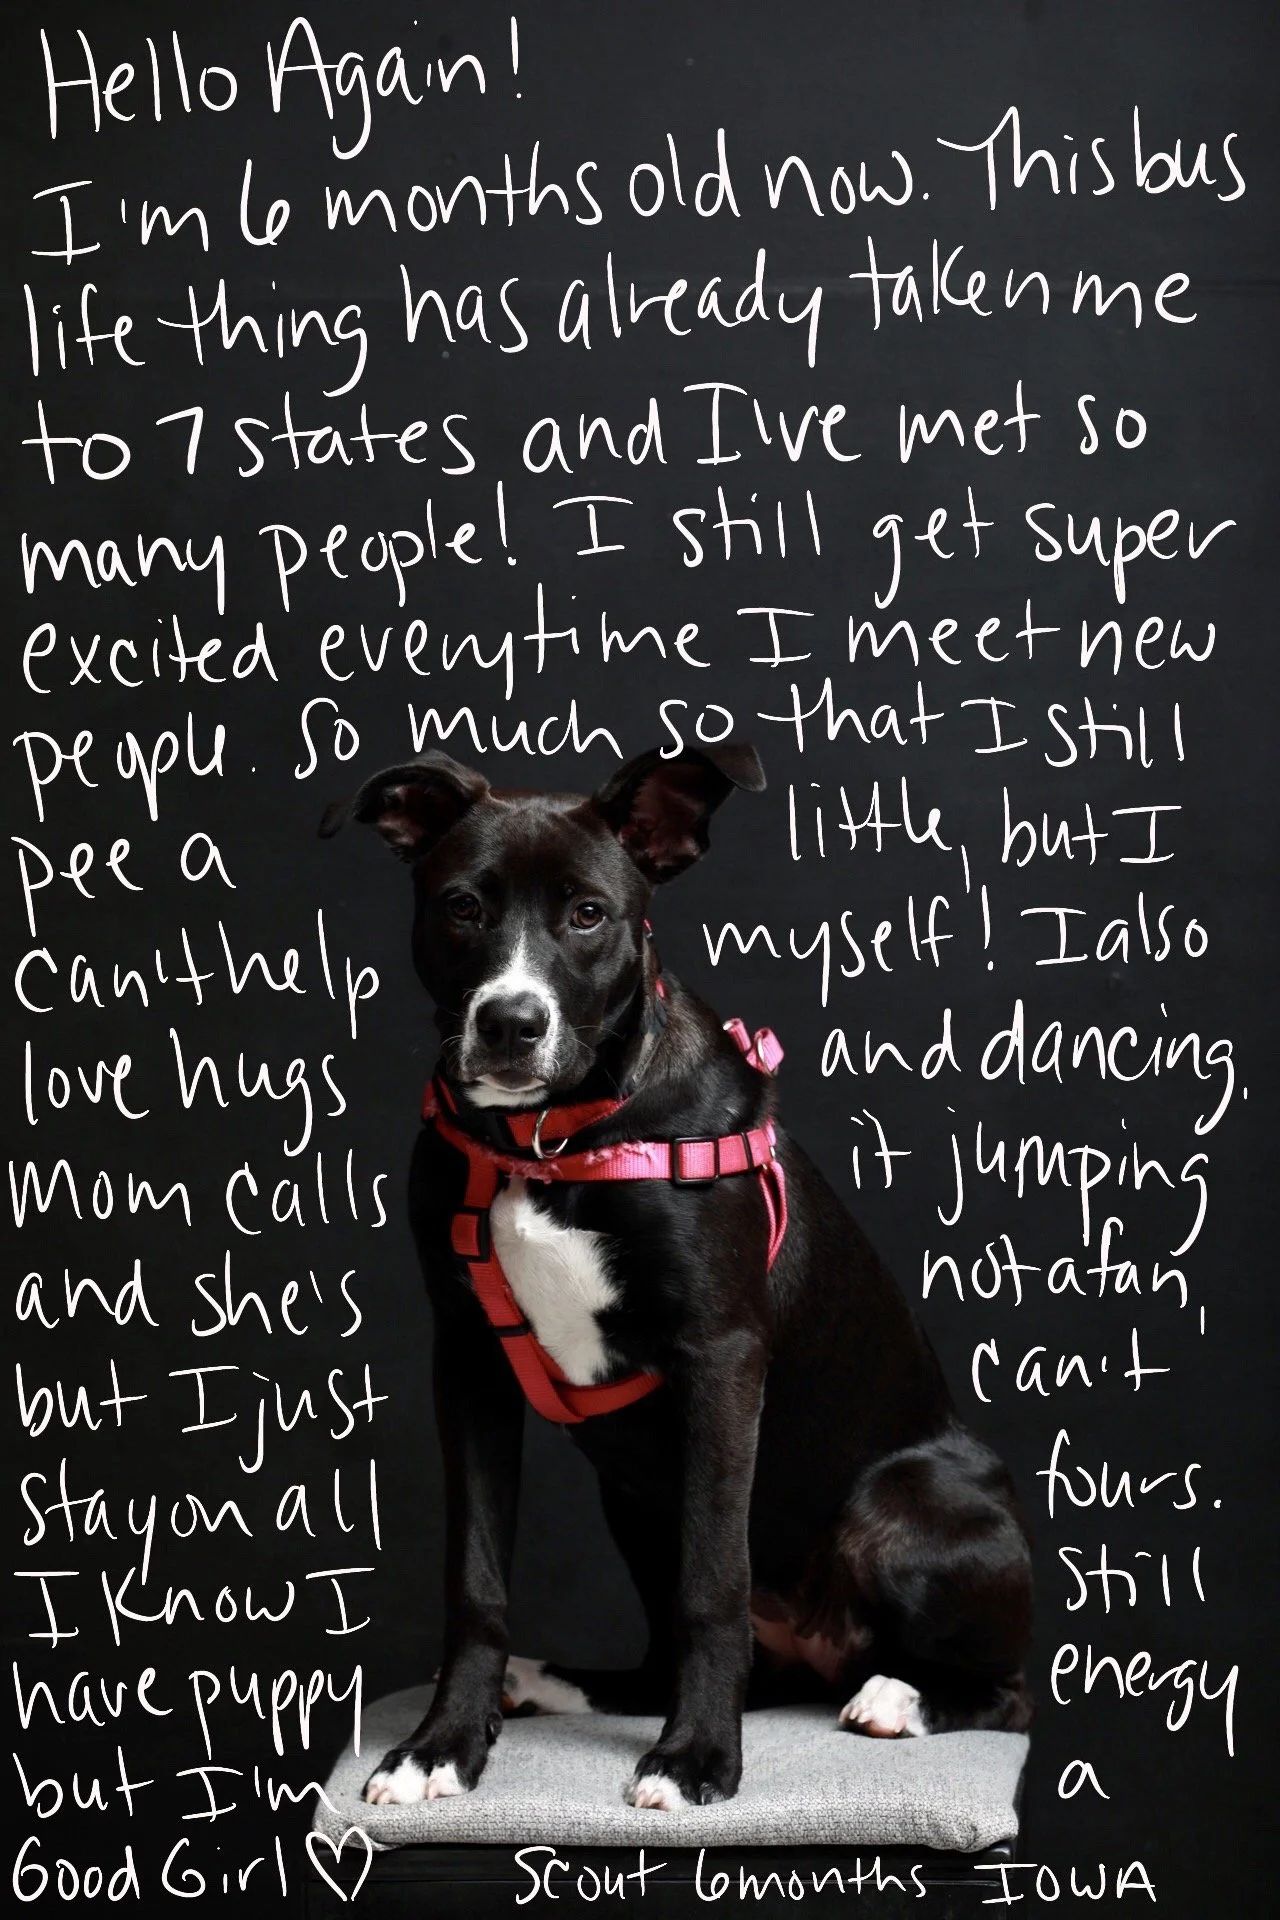 Hello Again!
I'm 6 months old now. This bus
life thing has already taken me
to 7 states and I've met so
many people! I still get super
excited everytime I meet new
people. So much so that I still
pee a little, but I
can't help myself! I also
love hugs and dancing.
Mom calls it jumping
and she's not a fan,
but I just can't
stay on all fours.
I know I still
have puppy energy
but I'm a
Good Girl ♡
Scout 6 months IOWA